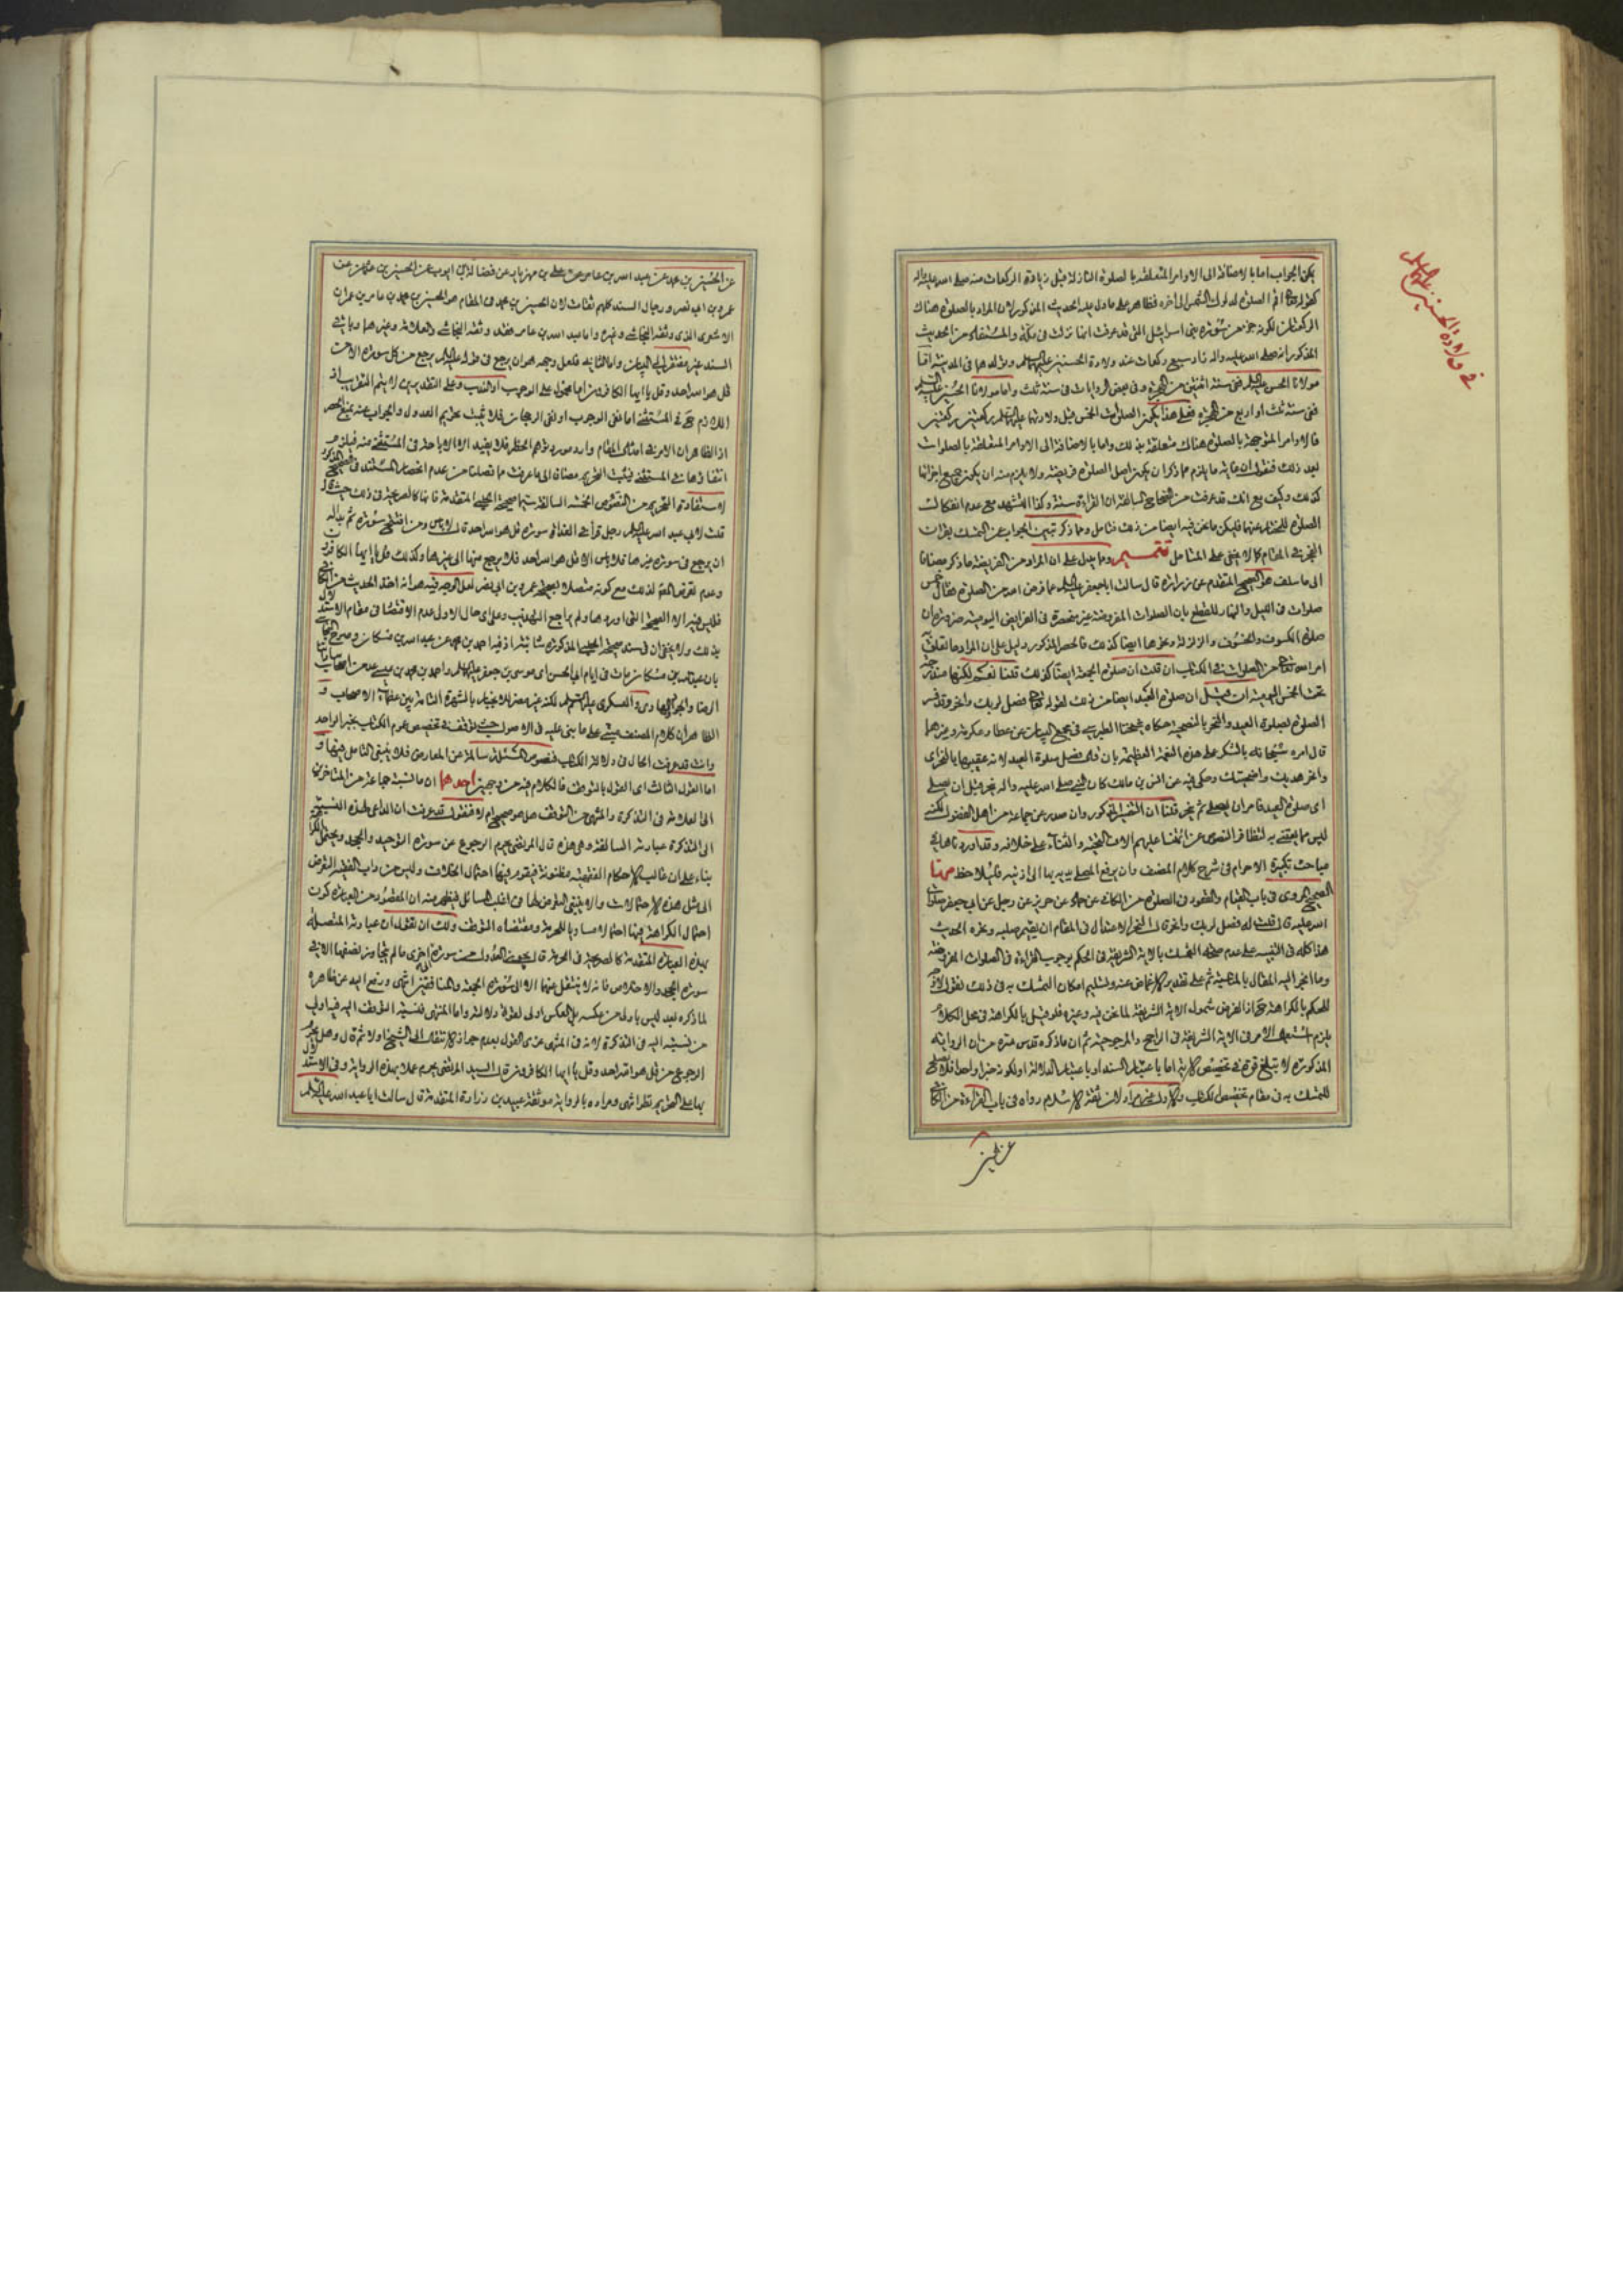 يمكن الجواب اما بالاضافة الى الاوامر المتعلقة بالصلوة النازلة قبل زيادة الركعات منه صلى الله عليه واله
كقوله تعالى اقم الصلوة لدلوك الشمس الى اخره فظاهر على ما دل عليه الحديث المذكور لان المراد بالصلوة هناك
الركعتان لكونه جزء من سورة بنى اسرائيل التى قد عرفت انها نزلت فى مكة والمستفاد من الحديث
المذكور انه صلى الله عليه واله زاد سبع ركعات عند ولادة الحسنين عليهما السلم وتولدهما فى المدينة اما
مولانا الحسن عليه السلم ففى سنة اثنتين من الهجرة وفى بعض الروايات فى سنة ثلث واما مولانا الحسين عليه السلم
ففى سنة ثلث او اربع من الهجرة فعلى هذا يكون الصلوات الخمس قبل ولادتهما عليهما السلم ركعتين ركعتين
فالاوامر المتوجهة بالصلوة هناك متعلقة بذلك واما بالاضافة الى الاوامر المتعلقة بالصلوات
بعد ذلك فنقول ان غاية ما يلزم مما ذكر ان يكون اصل الصلوة فريضة ولا يلزم منه ان يكون جميع اجزائها
كذلك وكيف مع انك قد عرفت من الصحاح السالفة ان القراءة سنة وكذا التشهد مع عدم انفكاك
الصلوة عنهما فليكن ما نحن فيه ايضا من ذلك فتامل ومما ذكر تبين الجواب عن التمسك بقران
الفجر فى المقام كما لا يخفى على المتامل تتميم ومما يدل على ان المراد من الفريضة ما ذكر مضافا
الى ما سلف هو الصحيح المتقدم عن زرارة قال سالت ابا جعفر عليه السلم عما فرض الله من الصلوة فقال خمس
صلوات فى الليل والنهار للقطع بان الصلوات المفروضة غير منحصرة فى الفرائض اليومية ضرورة ان
صلوة الكسوف والخسوف والزلزلة ونحوها ايضا كذلك فالحصر المذكور دليل على ان المراد ما تعلق به
امر الله تعالى من الصلوات فى الكتاب ان قلت ان صلوة الجمعة ايضا كذلك قلنا نعم لكنها مندرجة
تحت الخمس اليومية ان قيل ان صلوة العيد ايضا من ذلك لقوله تعالى فصل لربك وانحر وقد فسر
الصلوة بصلوة العيد والنحر بالتضحية حكاه شيخنا الطبرسى فى مجمع البيان عن عطا وعكرمة وغيرهما
قال امره سبحانه بالشكر على هذه النعمة العظيمة بان قال فصل صلوة العيد لانه عقبها بالنحر اى
وانحر هديك واضحيتك وحكى فيه عن انس بن مالك كان النبى صلى الله عليه واله ينحر قبل ان يصلى
اى صلوة العيد فامر ان يصلى ثم ينحر قلنا ان التفسير المذكور وان صدر عن جماعة من اهل لكنه
ليس مما يعتنى به لتظافر النصوص عن ائمتنا عليهم الاف التحية والثناء على خلافه وقد اوردناها فى
مباحث تكبيرة الاحرام فى شرح كلام المصنف وان يرفع المصلى يديه بها الى اذنيه فليلاحظ منها
الصحيح المروى فى باب القيام والقعود فى الصلوة من الكافى عن حماد عن حريز عن رجل عن ابى جعفر صلوات
الله عليه قال قلت له فصل لربك وانحر قال النحر الاعتدال فى المقام ان يقيم صلبه ونحره الحديث
هذا كله فى التنبيه على عدم صحة التمسك بالاية الشريفة فى الحكم بوجوب القراءة فى الصلوات المفروضة
وما انجر اليه المقال بالمناسبة ثم على تقدير الاغماض عنه وتسليم امكان التمسك به فى ذلك نقول لازم
للحكم بالكراهة حـ اذ الفرض شمول الاية الشريفة لما نحن فيه وغيره فلو قيل بالكراهة فى محل الكلام
يلزم استعمال الامر فى الاية الشريفة فى الراجح والمرجوح ثم ان ما ذكره قدس سره من ان الرواية
المذكورة لا تبلغ قوة فى تخصيص الاية اما باعتبار السند او باعتبار الدلالة او لكونه خبرا واحدا فلا يصلح
للتمسك به فى مقام تخصيص الكتاب والاول غير مراد لان ثقة الاسلام رواه فى باب القراءة من الكافى
عن الحسين
فى ولادة الحسنين عليهما السلم
عن الحسين بن محمد عن عبد الله بن عامر عن على بن مهزيار عن فضالة بن ايوب عن الحسين بن عثمان عن
عمرو بن ابى نصر ورجال السند كلهم ثقات لان الحسين بن محمد فى المقام هو الحسين بن محمد بن عامر بن عمران
الاشعرى الذى وثقه النجاشى وغيره واما عبد الله بن عامر فقد وثقه النجاشى والعلامة وغيرهما وباقى
السند غير مفتقر الى البيان واما الثانى فلعل وجهه هو ان يرجع فى قوله عليه السلم يرجع من كل سورة الا من
قل هو الله احد وقل يا ايها الكافرون اما محمول على الوجوب او الندب وعلى التقديرين لا يتم التقريب اذ
اللازم حـ فى المستثنى اما نفى الوجوب او نفى الرجحان فلا يثبت تحريم العدول والجواب عنه بمنع الحصر
اذ الظاهر ان الامر فى امثال المقام وارد مورد توهم الحظر فلا يفيد الا الاباحة فى المستثنى منه فيلزم
انتفاؤها فى المستثنى فيثبت التحريم مضافا الى ما عرفت مما فصلنا من عدم انحصار المستند فى الصحيح المذكور
لاستفادة التحريم من النصوص الخمسة السالفة سيما صحيحة الحلبى المتقدمة فانها كالصريحة فى ذلك حيث قال
قلت لابى عبد الله عليه السلم رجل قرأ فى الغداة سورة قل هو الله احد قال لا باس ومن افتتح سورة ثم بدا له
ان يرجع فى سورة غيرها فلا باس الا قل هو الله احد فلا يرجع منها الى غيرها وكذلك قل يا ايها الكافرون
وعدم تعرض المص لذلك مع كونه متصلا بصحيحة عمرو بن ابى نصر لعل الوجه فيه هو انه اخذ الحديث من الكافى
فليس فيه الا الصحيحة التى اوردها ولم يراجع التهذيب وعلى اى حال الاولى عدم الاقتصار فى مقام الاستدلال
بذلك ولا يخفى ان فى سند صحيحة الحلبى المذكورة شائبة اذ فيه احمد بن محمد عن عبد الله بن مسكان وصرح النجاشى
بان عبد الله بن مسكان مات فى ايام ابى الحسن اى موسى بن جعفر عليهما السلم واحمد بن محمد بن عيسى عد من اصحاب مولانا
الرضا والجواد والهادى والعسكرى عليهم السلم لكنه غير مضر للانجبار بالشهرة التامة بين الاصحاب و
الظاهر ان كلام المصنف مبنى على ما بنى عليه فى الاصول حيث توقف فى تخصيص عموم الكتاب بخبر الواحد
وانت قد عرفت الحال فى دلالة الكتاب فنصوص المسئلة سالمة عن المعارض فلا ينبغى التامل فيها و
اما القول الثالث اى القول بالتوقف فالكلام فيه من وجهين احدهما ان ما نسبه جماعة من المتاخرين
الى العلامة فى التذكرة والمنتهى من التوقف هل هو صحيح ام لا فنقول قد عرفت ان الداعى لهذه النسبة
الى التذكرة عبارته السالفة وهى هذه قال المرتضى يحرم الرجوع عن سورة التوحيد والجحد ويحتمل الكراهة
بناء على ان غالب الاحكام الفقهية مظنونة فيقوم فيها احتمال الخلاف وليس من داب الفقيه التعرض
الى مثل هذه الاحتمالات والا ينبغى التعرض لها فى اغلب المسائل فيظهر منه ان المقصود من العبارة كون
احتمال الكراهة فيها احتمالا مساويا للحرمة ومقتضاه التوقف ولك ان تقول ان عبارته المتصلة
بهذه العبارة المتقدمة كالصريحة فى الحرمة قال يجوز العدول من سورة الى اخرى ما لم يتجاوز نصفها الا فى
سورة الجحد والاخلاص فانه لا ينتقل عنهما الا الى سورة الجمعة والمنافقين انتهى ورفع اليد عن ظاهره
لما ذكره بعد ليس باولى من عكسه بل العكس اولى لقوة دلالته واما المنتهى فنسبة التوقف اليه فيه اولى
من نسبته اليه فى التذكرة لانه فى المنتهى عزى القول بعدم جواز الانتقال الى الشيخ اولا ثم قال وهل يحرم
الرجوع من قل هو الله احد وقل يا ايها الكافرون قال السيد المرتضى يحرم عملا بهذه الرواية وفى الاستدلال
بها على التحريم نظر انتهى ومراده بالرواية موثقة عبيد بن زرارة المتقدمة قال سالت ابا عبد الله عليه السلم